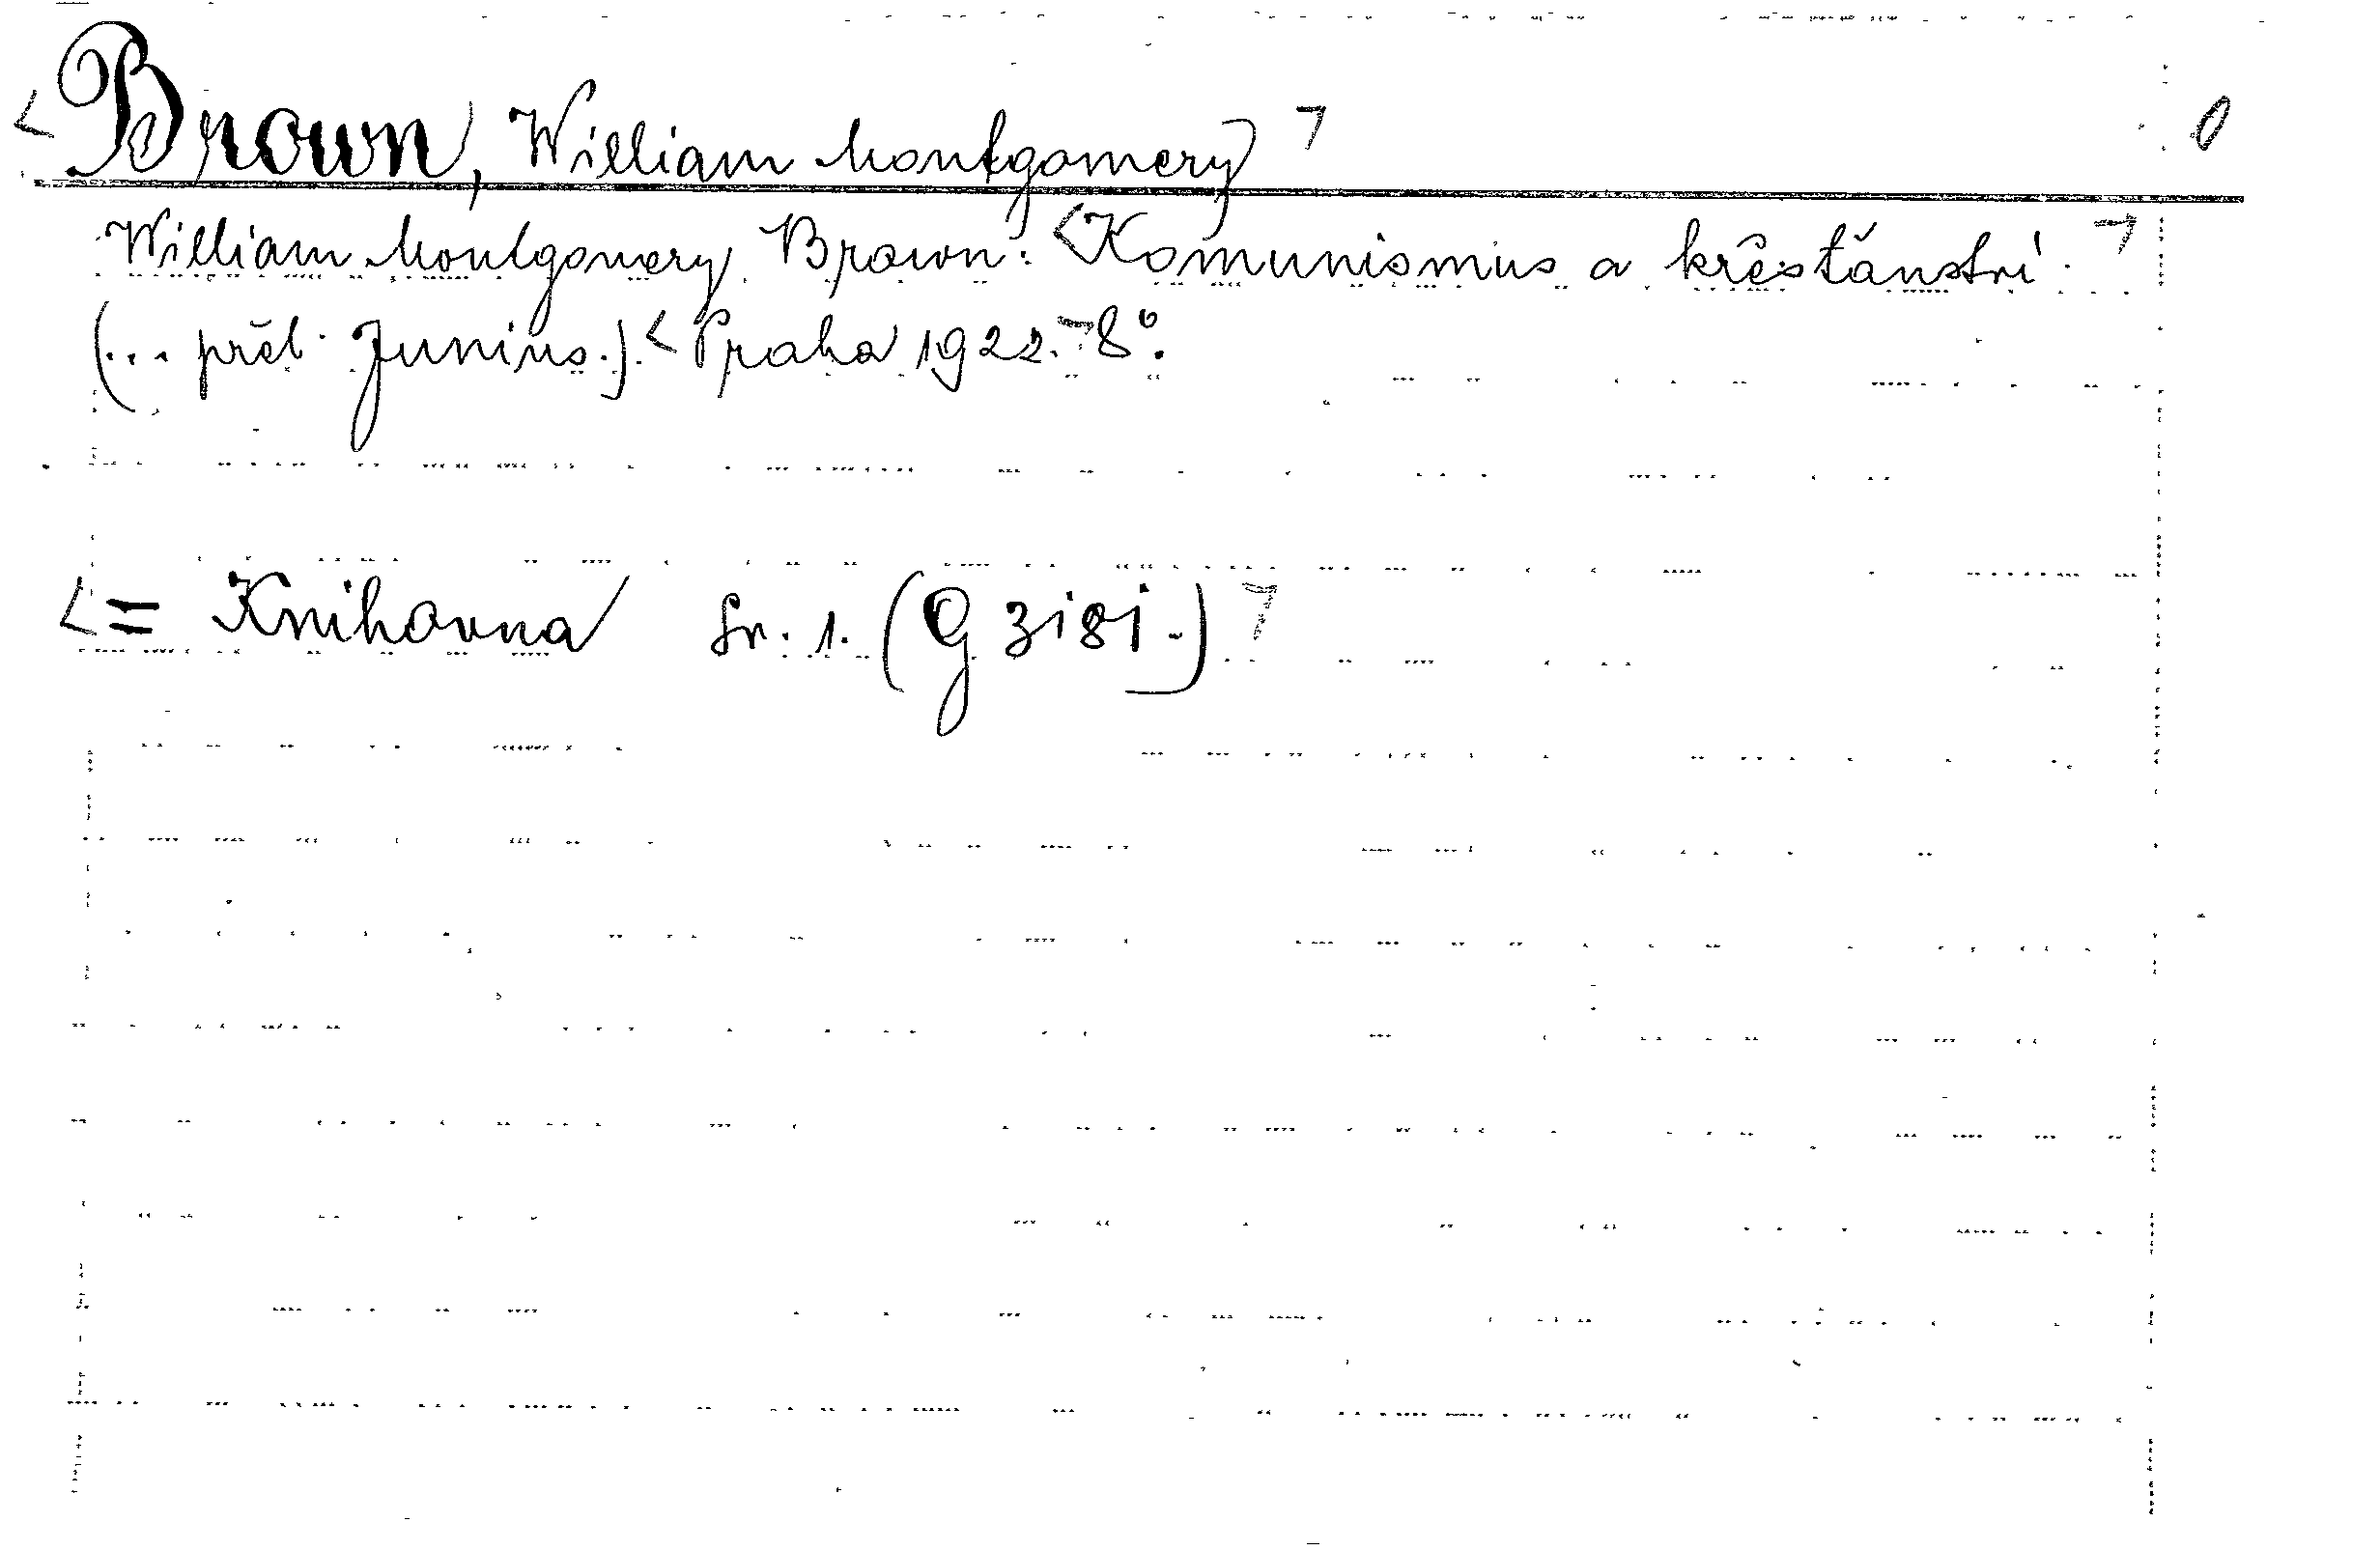 <Brown, William Montgomery> 0
William Montgomery Brown: <Komunismus a křesťanství.>
(... přel. Junius.) <Praha 1922.> 8°.
<= Knihovna sv. 1. (G 3181.)>